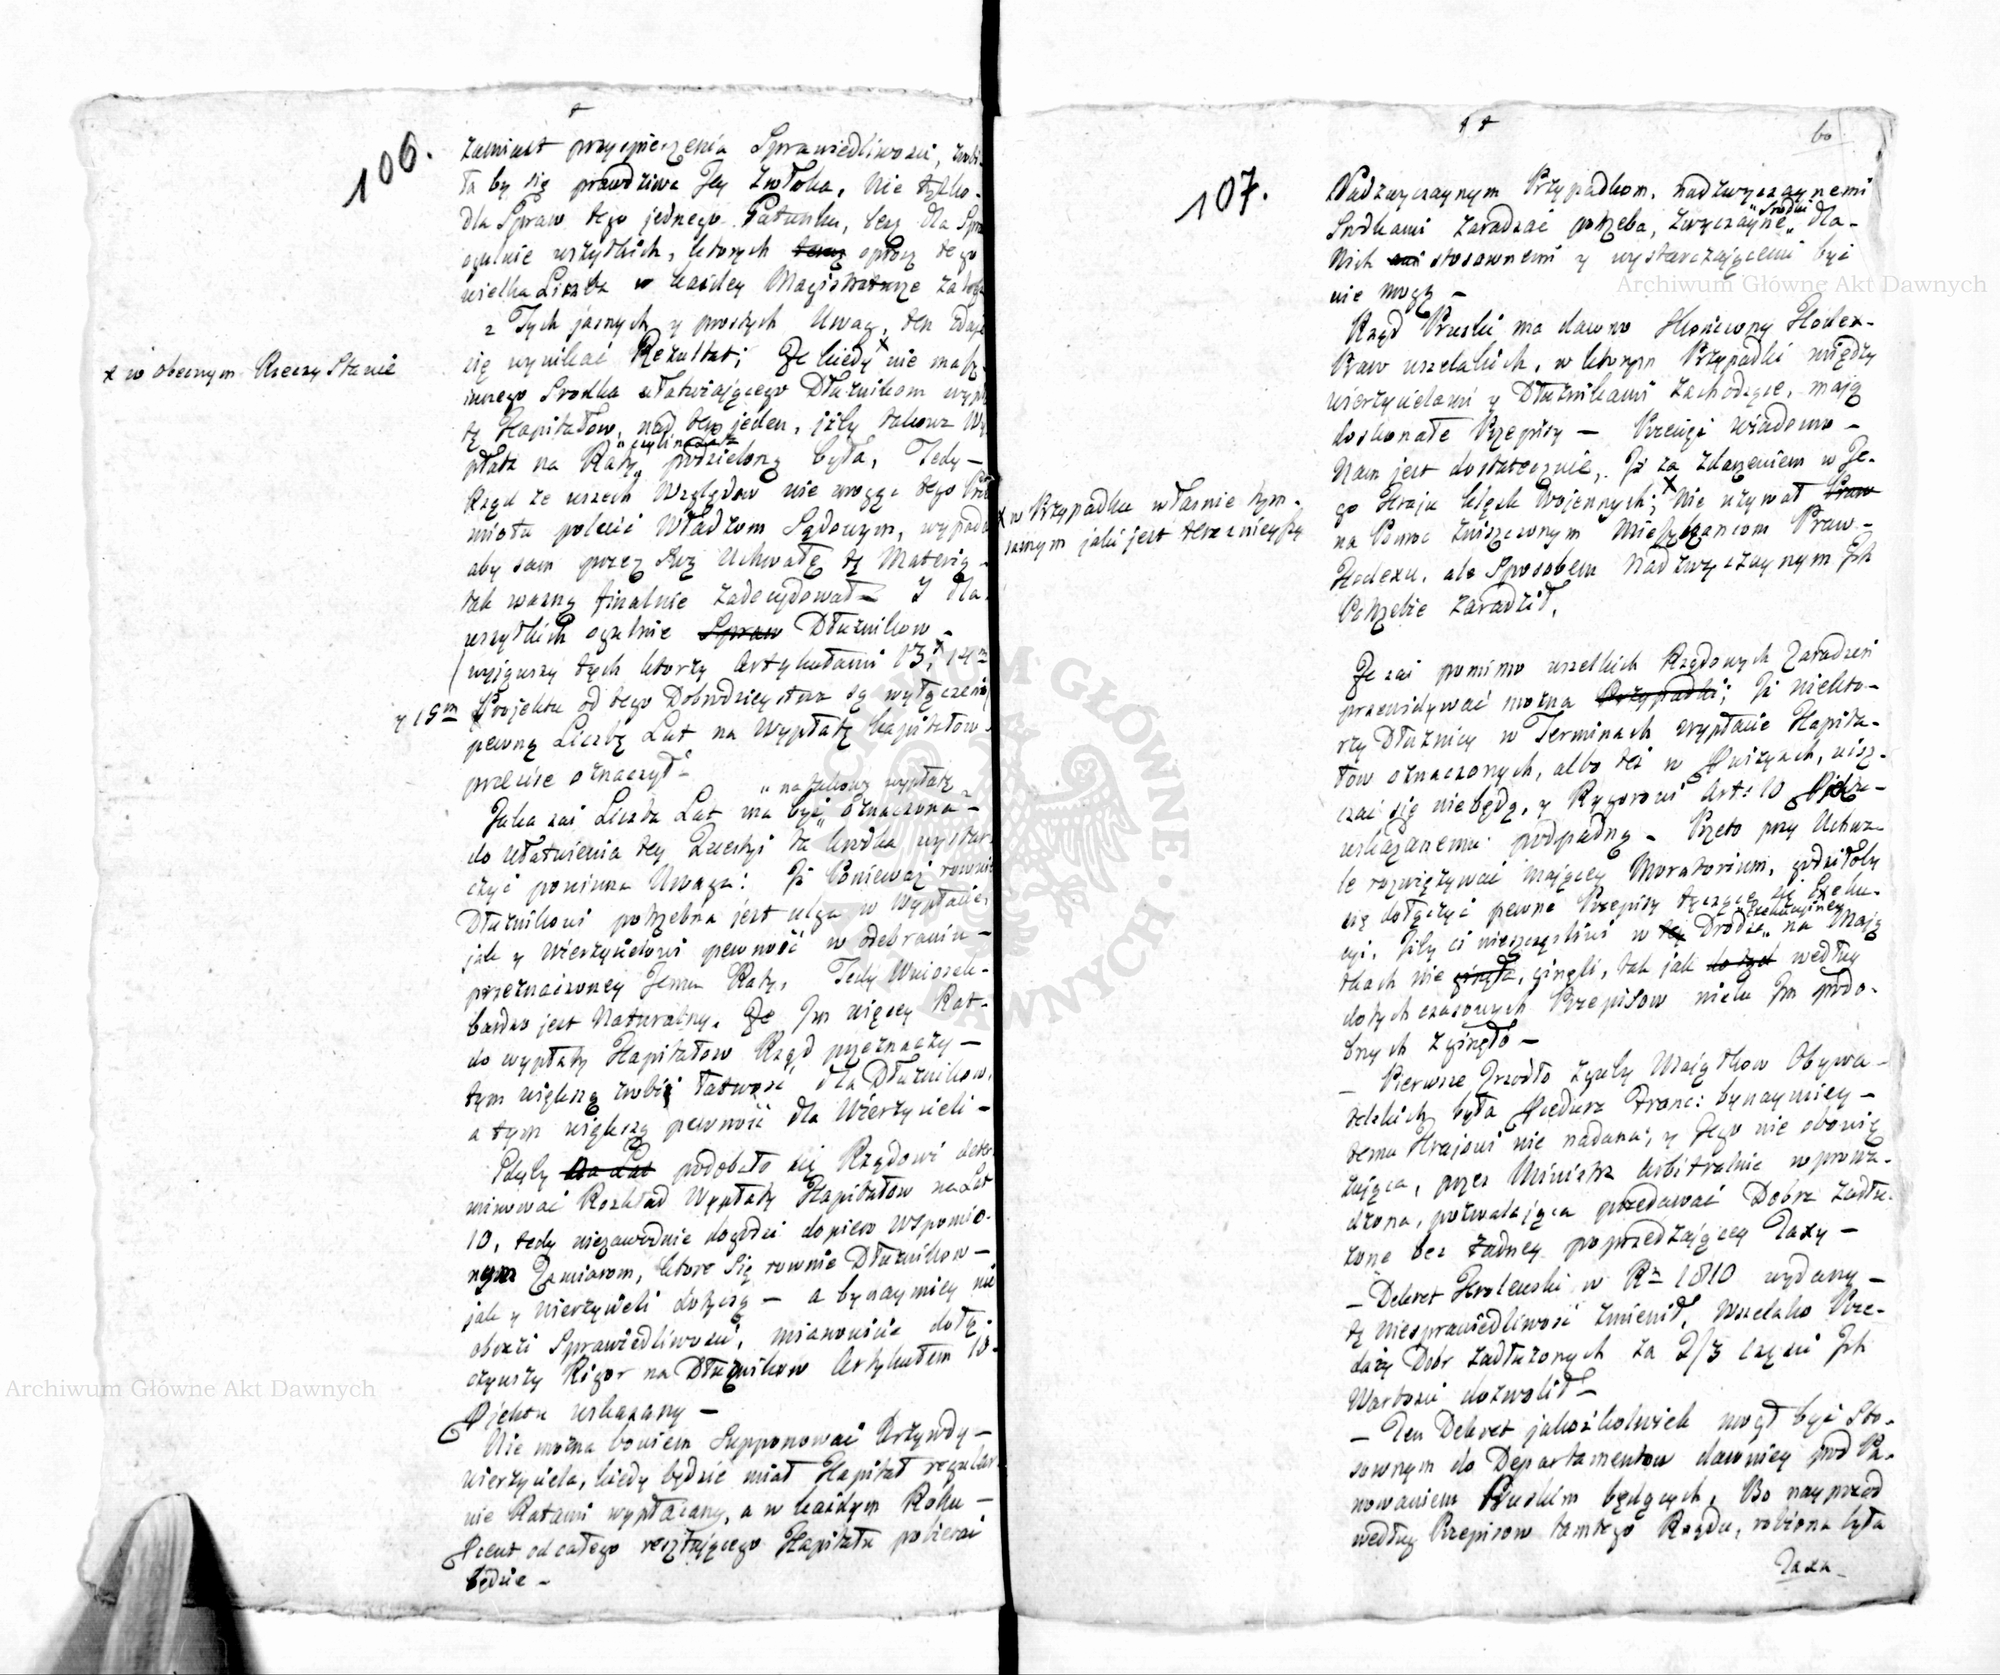 106.
zamiast przyspieszenia Sprawiedliwosci, zrobi-
ła by się prawdziwa Jey zwłoka, nie tylko-
dla Spraw tego jednego Gatunku, lecz dla Spra
ogulnie wszystkich, ktorych oprócz tego
wielka Liczba w kazdey Magistraturze zalega
z Tych jasnych y prostych Uwag, ten zdaje
się wynikać Rezultat; Ze kiedy x nie masz
x w obecnym Rzeczy Stanie
innego Srodka ułatwiającego Dłuznikom wypła
tę Kapitałow, nad ten jeden, izby takowa Wy
płata na Raty podzieloną była, Tedy-
Rząd ze wszech Względow nie mogąc tego Prze
miotu polecić Władzom Sądowym, wypada
aby sam przez Swą Uchwałę tę Materią-
tak wazną finalnie zadecydował- I dla
wszystkich ogulnie Spraw Dłuznikow-
(wyjąwszy tych ktorzy Artykułami 13, 14m
y 15m Projektu od tego Dobrodzieystwa są wyłączeni)
pewną Liczbę Lat na Wypłatę kapitałow
przecise oznaczył-
" na takową wypłatę
Jaka zaś Liczba Lat ma być " oznaczona-
do ułatwienia tey Questyi ta krotka wystar
czyć powinna Uwaga: Iż Poniewaz rownie
Dłuznikowi potrzebna jest ulga w Wypłacie,
jak y Wierzycielowi pewność w odebraniu-
przeznaczoney Jemu Raty, Tedy Wniosek-
bardzo jest Naturalny. Ze Im więcey Rat-
do wypłaty Kapitałow Rząd przeznaczy-
tym większą zrobi łatwość dla Dłuznikow,
a tym większą pewność dla Wierzycieli-
Gdyby na Lat podobało się Rządowi deter
minować Rozkład Wypłaty Kapitałow na Lat
10, tedy niezawodnie dogodzi dopiero wspomio-
nym Zamiarom, ktore Się rownie Dłuznikow-
jak y wierzycieli dotyczą- a bynaymniey nie
obrazi Sprawiedliwosci, mianowicie dołą-
czywszy Rigor na Dłuznikow Artykułem 10
Pjektu wskazany-
Nie mozna bowiem Supponować krzywdy-
wierzyciela, kiedy będzie miał Kapitał regular
nie Ratami wypłacany, a w kazdym Roku-
Pcent od całego resztującego Kapitału pobierać
będzie-
60
107.
Nadzwyczaynym Przypadkom, nadzwyczaynemi
Srodkami zaradzać potrzeba, zwyczayne " srodki dla-
Nich stosownemi y wystarczającemi być
nie mogą-
Rząd Pruski ma dawno Ułozony Kodex-
Praw wszelakich, w ktorym Przypadki między
wierzycielami y Dłuznikami zachodzące, mają
doskonałe Przepisy- Przeciez wiadomo-
Nam jest dostatecznie, Iż za zdarzeniem w Je-
go Kraju klęsk Woiennych; x Nie uzywał Praw
x w Przypadku własnie tym-
samym jaki jest terazniejszy
na Pomoc zniszczonym Mieszkancom Praw-
Kodexu, ale Sposobem Nadzwyczaynym Ich
Potrzebie zaradził.
Ze zaś pomimo wszelkich Rządowych Zaradzeń
przewidywać mozna Przypadki; Iż niekto-
rzy Dłuznicy w Terminach wypłacie Kapita-
łow oznaczonych, albo tez w Prowizyach, uisz-
czać się niebędą, y Rygorowi Art: 10
wskazanemu podpadną- Przeto przy Uchwa-
le rozwięzywać mającey Moratorium, godziłoby
się dołączyć pewne Przepisy tyczące się Exeku-
cyi, Izby ci nieszczęśliwi w tey Drodze " Exekucyiney na Mają
tkach nie ginęli, tak jak według
dotychczasowych Przepisow wielu Im podo-
bnych zginęło-
- Pierwsze Zrzodło zguby Maiątkow Obywa-
telskich była Pcedura Franc: bynaymniey-
temu Krajowi nie nadana, y Jego nie obowią
zująca, przez Ministra Arbitralnie wprowa-
dzona, pozwalająca przedawać Dobra zadłu-
zone bez zadney poprzedzającey Taxy-
- Dekret Krolewski w Rn 1810 wydany-
tę Niesprawiedliwość zmienił, wszelako Prze-
dazy Dobr zadłuzonych za 2/3 części Ich
Wartosci dozwolił-
- Ten Dekret jakozkolwiek mogł być Sto-
sownym do Departamentow dawniey pod Pa-
nowaniem Pruskim będących, Bo nayprzod
według Przepisow tamtego Rządu, robiona była
Taxa-
Archiwum Główne Akt Dawnych
Archiwum Główne Akt Dawnych
ARCHIWUM GŁÓWNE AKT DAWNYCH